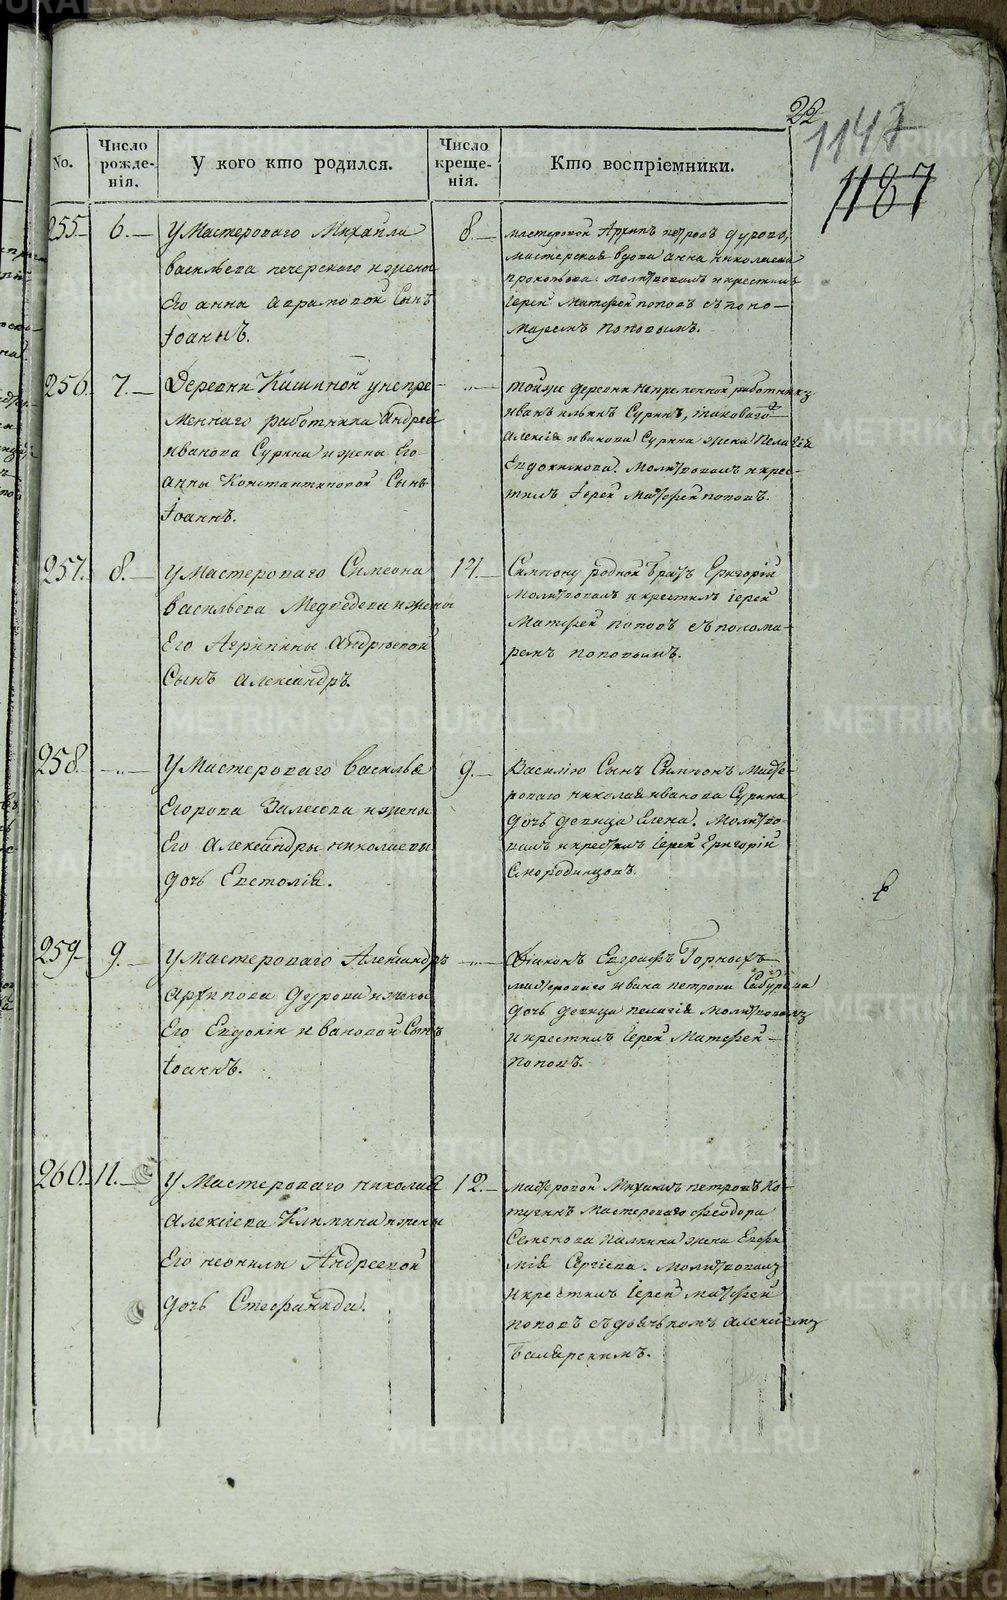 22
1143
1187
No.
Число рожде-нія.
У кого кто родился.
Число креще-нія.
Кто воспріемники.
255. 6. У Мастероваго Михаила
васильева печерскаго и жены
Его анна аврамовой Сынъ
Іоаннъ.
8. мастеровой Архипъ петровъ дуровъ,
мастерская вдова анна николаева
прокопьева. молитвовалъ и крестилъ
іерей Матфей поповъ съ поно-
маремъ поповымъ.
256. 7. Деревни Кишкиной у непре-
меннаго работника Андрея
иванова Сурина и жены Его
анны Константиновой Сынъ
Іоаннъ.
„ тойже деревни непременной работникъ
иванъ ильинъ Суринъ, таковагожъ
алексія иванова Сурина жена Пелагія
Евдокимова. Молитвовалъ и крес-
тилъ Іерей Матфей поповъ.
257. 8. У Мастероваго Симеона
васильева Медведева и жены
Его Агрипины Андреевой
Сынъ александръ.
14. Симіону родной братъ Григорій
молитвовалъ и крестилъ іерей
Матфей поповъ съ понома-
ремъ поповымъ.
258. „ У Мастероваго василья
Егорова Залесова и жены
Его Александры николаевы
дочь Евстолія.
9. Василію Сынъ Симіонъ Масте-
роваго николая иванова Сурина
дочь девица Елена. Молитво-
валъ и крестилъ іерей Григорій
Смородинцовъ.
259. 9. У Мастероваго Александръ
архипова дурова и жены
Его Евдокіи ивановой Сынъ
Іоаннъ.
„ Діаконъ Евграфъ Горныхъ
мастероваго ивана петрова
дочь девица пелагія молитвовалъ
и крестилъ іерей Матфей
поповъ.
260. 11. У Мастероваго николая
алексіева Климина и жены
Его неонилы Андреевой
дочь Стефанида.
12. мастеровой Михаилъ петровъ Ко-
тугинъ мастероваго феодора
Семенова палкина жена Евфи
мія Сергіева. Молитвовалъ
и крестилъ іерей матфей
поповъ съ дьячькомъ алексіемъ

METRIKI.GASO-URAL.RU